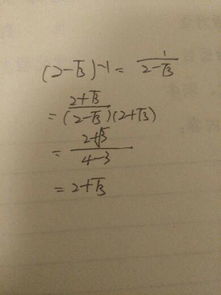 (2-√3)-1 = 1/(2-√3)
= (2+√3)/((2-√3)(2+√3))
= (2+√3)/(4-3)
= 2+√3